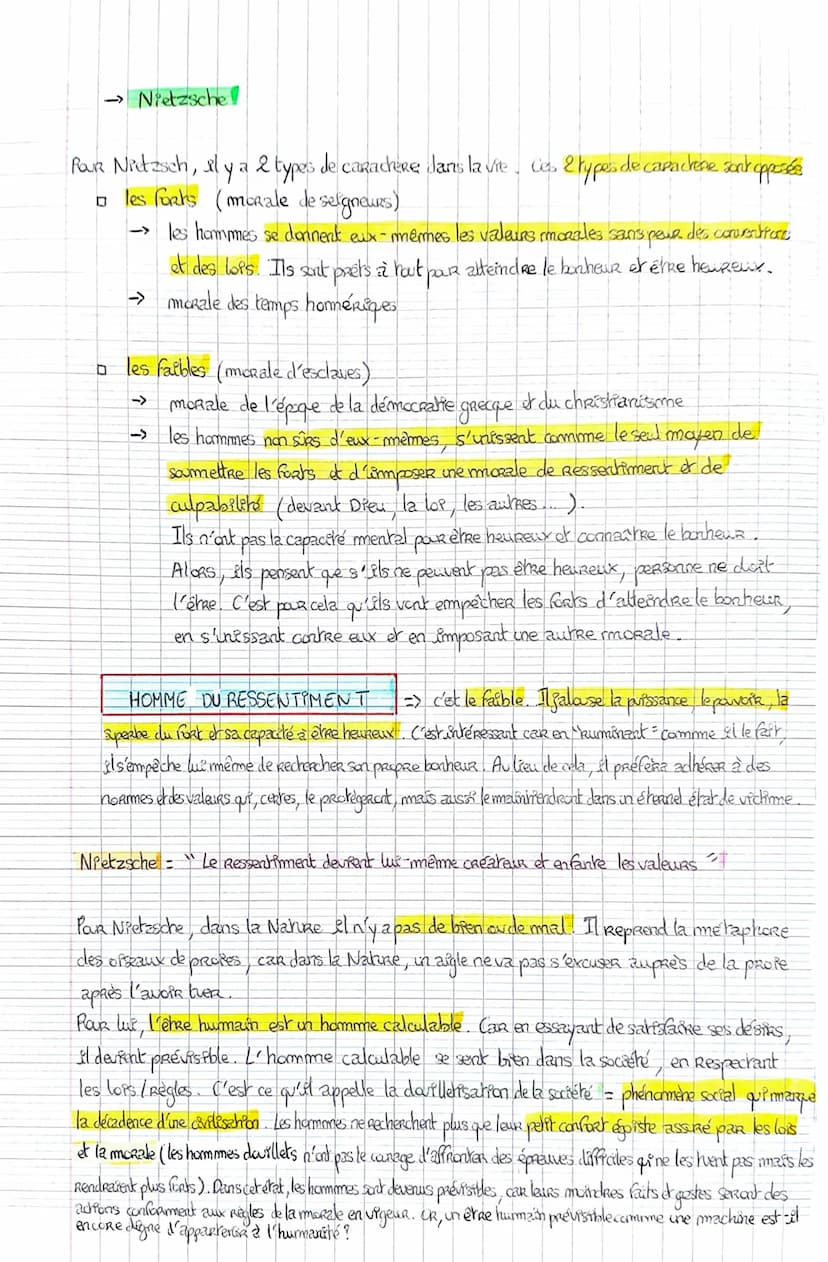 → Nietzsche
Pour Nietzsch, il y a 2 types de carachère dans la vie. Ces 2 types de carachère sont opposés
□ les forts (morale de seigneurs)
→ les hommes se donnent eux-mêmes les valeurs morales sans peur des conventions
et des lois. Ils sont prêts à tout pour atteindre le bonheur et être heureux.
→ morale des temps homériques
□ les faibles (morale d'esclaves)
→ morale de l'époque de la démocratie grecque et du christianisme
→ les hommes non sûrs d'eux-mêmes, s'unissent comme le seul moyen de
soumettre les forts et d'imposer une morale de ressentiment et de
culpabilité (devant Dieu, la loi, les autres...).
Ils n'ont pas la capacité mental pour être heureux et connaître le bonheur.
Alors, ils pensent que s'ils ne peuvent pas être heureux, personne ne doit
l'être. C'est pour cela qu'ils vont empêcher les forts d'atteindre le bonheur,
en s'unissant contre eux et en imposant une autre morale.
HOMME DU RESSENTIMENT => c'est le faible. Il jalouse la puissance, le pouvoir, la
superbe du fort et sa capacité à être heureux. C'est intéressant car en "ruminant" comme il le fait,
il s'empêche lui même de rechercher son propre bonheur. Au lieu de cela, il préfère adhérer à des
normes et des valeurs qui, certes, le protègeront, mais aussi le maintiendront dans un éternel état de victime.
Nietzsche = "Le ressentiment devient lui-même créateur et enfante les valeurs"
Pour Nietzsche, dans la Nature il n'y a pas de bien ou de mal. Il reprend la métaphore
des oiseaux de proies, car dans la Nature, un aigle ne va pas s'excuser auprès de la proie
après l'avoir tuer.
Pour lui, l'être humain est un homme calculable. Car en essayant de satisfaire ses désirs,
il devient prévisible. L'homme calculable se sent bien dans la société, en respectant
les lois/règles. C'est ce qu'il appelle la douilletisation de la société = phénomène social qui marque
la décadence d'une civilisation. Les hommes ne recherchent plus que leur petit confort égoïste assuré par les lois
et la morale (les hommes douillets n'ont pas le courage d'affronter des épreuves difficiles qui ne les tuent pas mais les
rendraient plus forts). Dans cet état, les hommes sont devenus prévisibles, car leurs moindres faits et gestes seront des
actions conformément aux règles de la morale en vigueur. Or, un être humain prévisible comme une machine est-il
encore digne d'appartenir à l'humanité?